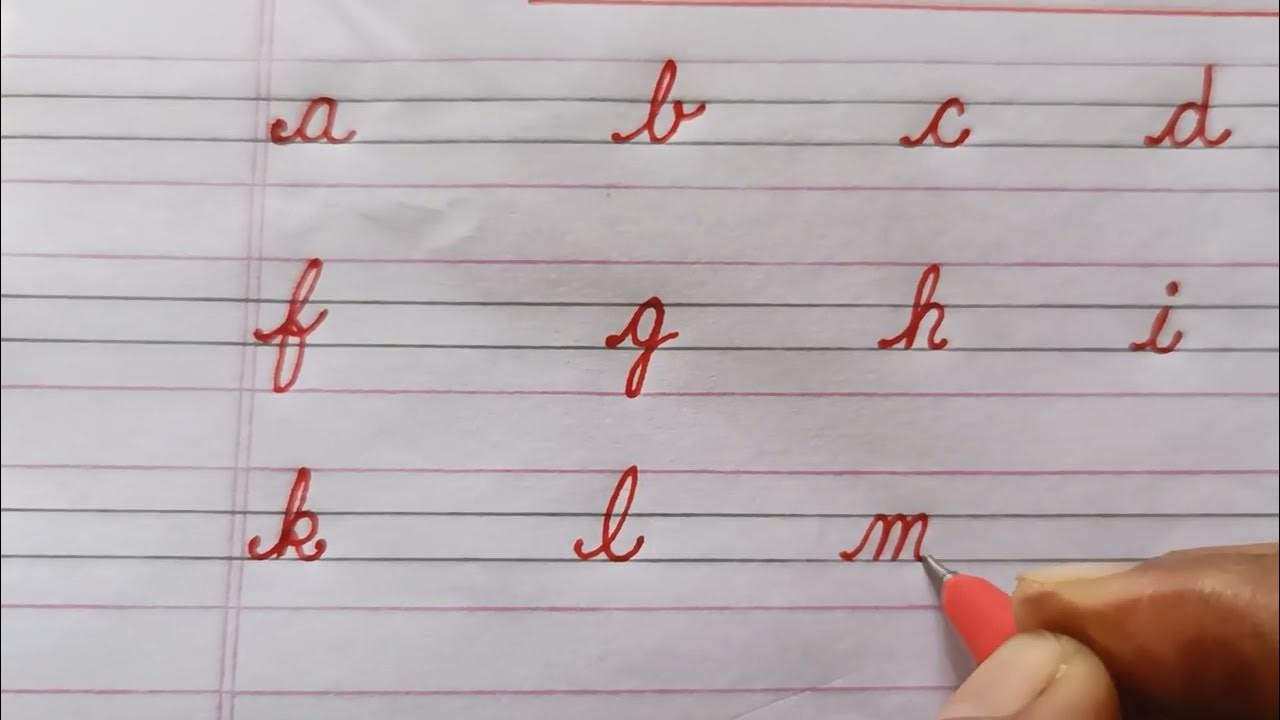 a b c d
f g h i
k l m